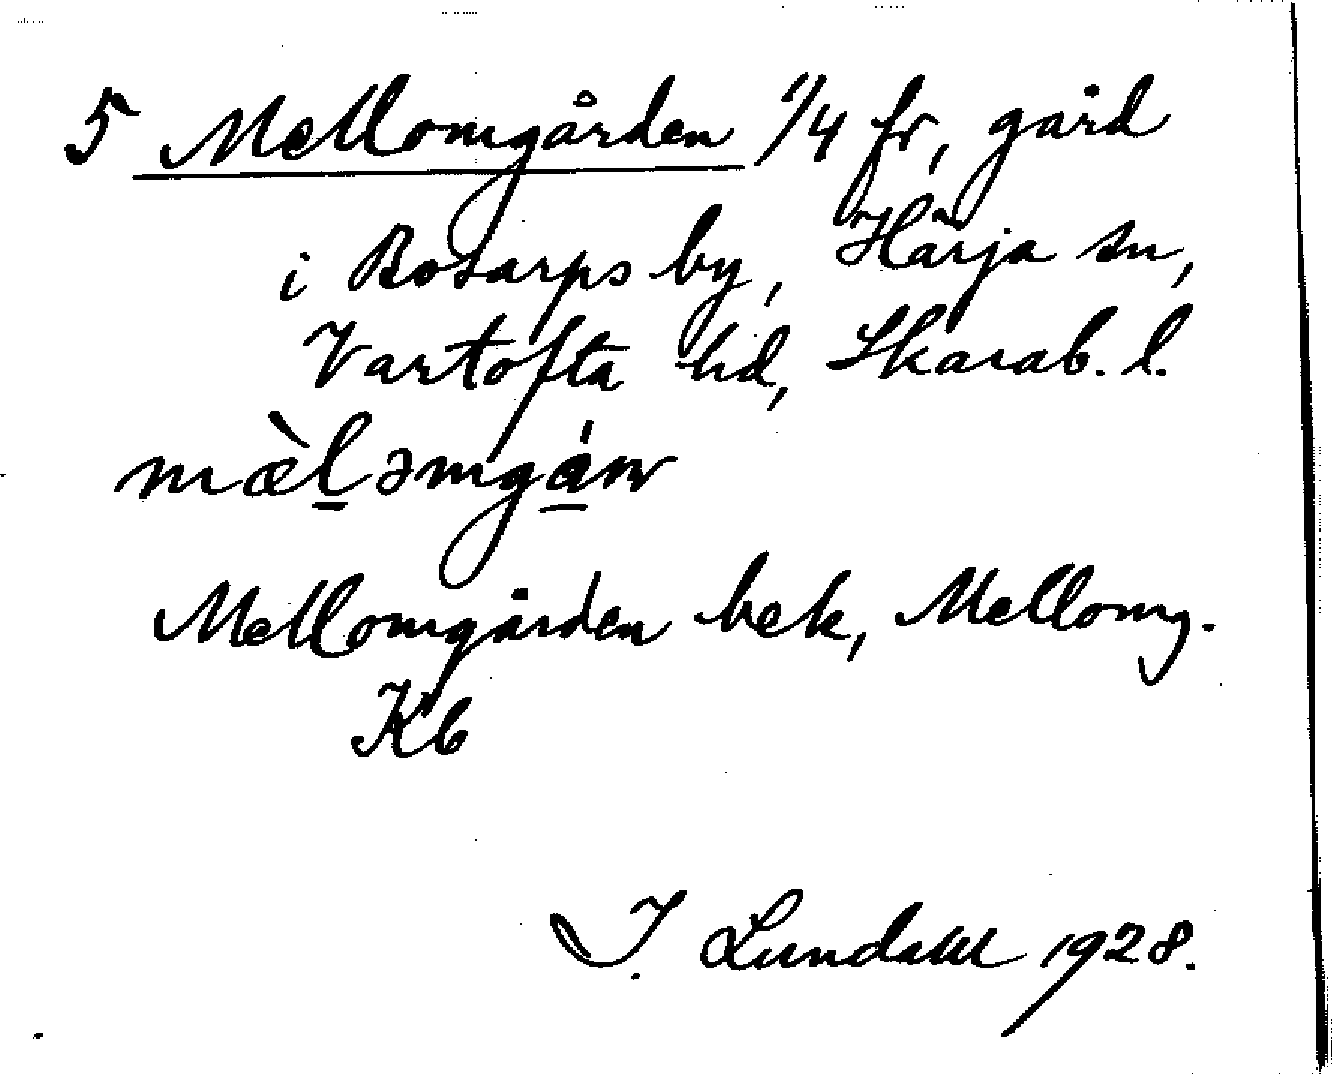 5 Mellomgården 1/4 fr, gård
i Bosarps by, Härja sn,
Vartofta hd, Skarab. l.
mæ̀l̠əmgá̠ɴ
Mellomgården bek, Mellomg.
Kb
I. Lundahl 1928.